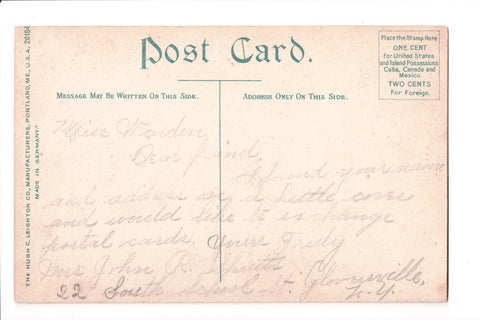 Post Card.
Place the Stamp Here
ONE CENT
for United States
and Island Possessions
Cuba, Canada and
Mexico.
TWO CENTS
For Foreign.
MESSAGE MAY BE WRITTEN ON THIS SIDE.
ADDRESS ONLY ON THIS SIDE.
THE HUGH C. LEIGHTON CO., MANUFACTURERS, PORTLAND, ME., U.S.A. 26184
MADE IN GERMANY
Miss Warden,
Dear friend,
I found your name
and address on a kettle cover
and would like to exchange
postal cards. Yours Truly
Mrs John R. Shutts
22 South School St. Gloversville,
N.Y.